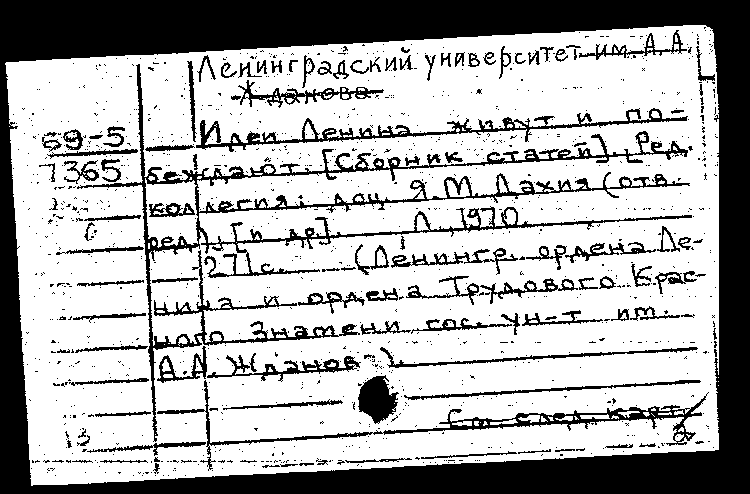 Ленинградский университет им. А.А.
Жданова.
69-5 Идеи Ленина живут и по-
7365 беждают. [Сборник статей]. [Ред.
коллегия: доц. Я.М. Дахия (отв.
ред.), [и др]. Л., 1970.
271 с. (Ленингр. ордена Ле-
нина и ордена Трудового Крас-
ного Знамени гос. ун-т им.
А.А. Жданова).
См. след. карт.
13